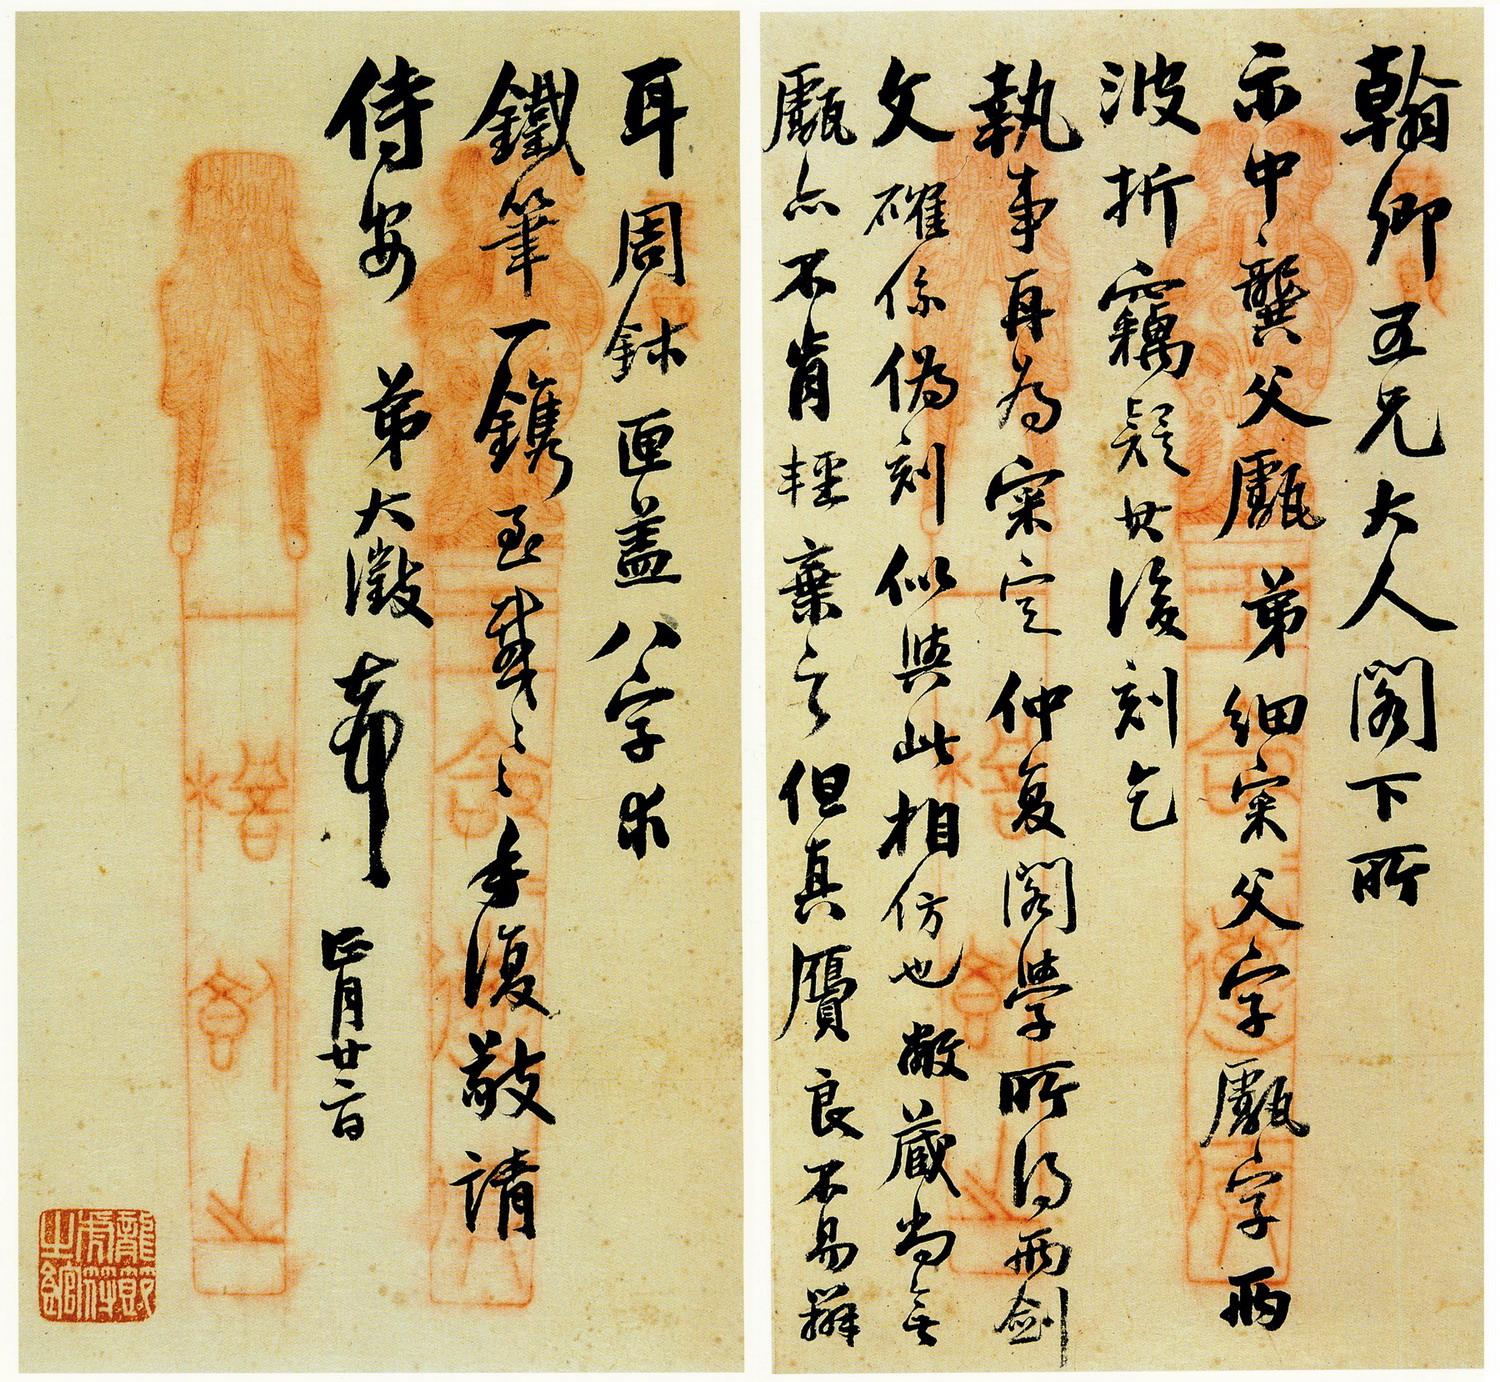 翰卿五兄大人閣下所
示中龔父甗弟細案父字甗字兩
波折竊疑其後刻乞
執事再為案定仲復閣學所得兩劍
文確係偽刻似與此相仿也敝藏尚無
甗亦不肯輕棄之但真贋良不易辨
耳周鉢匣蓋八字求
鐵筆一鐫至感〻〻手復敬請
侍安 弟大澂頓首 正月廿二日
龍節虎符之館